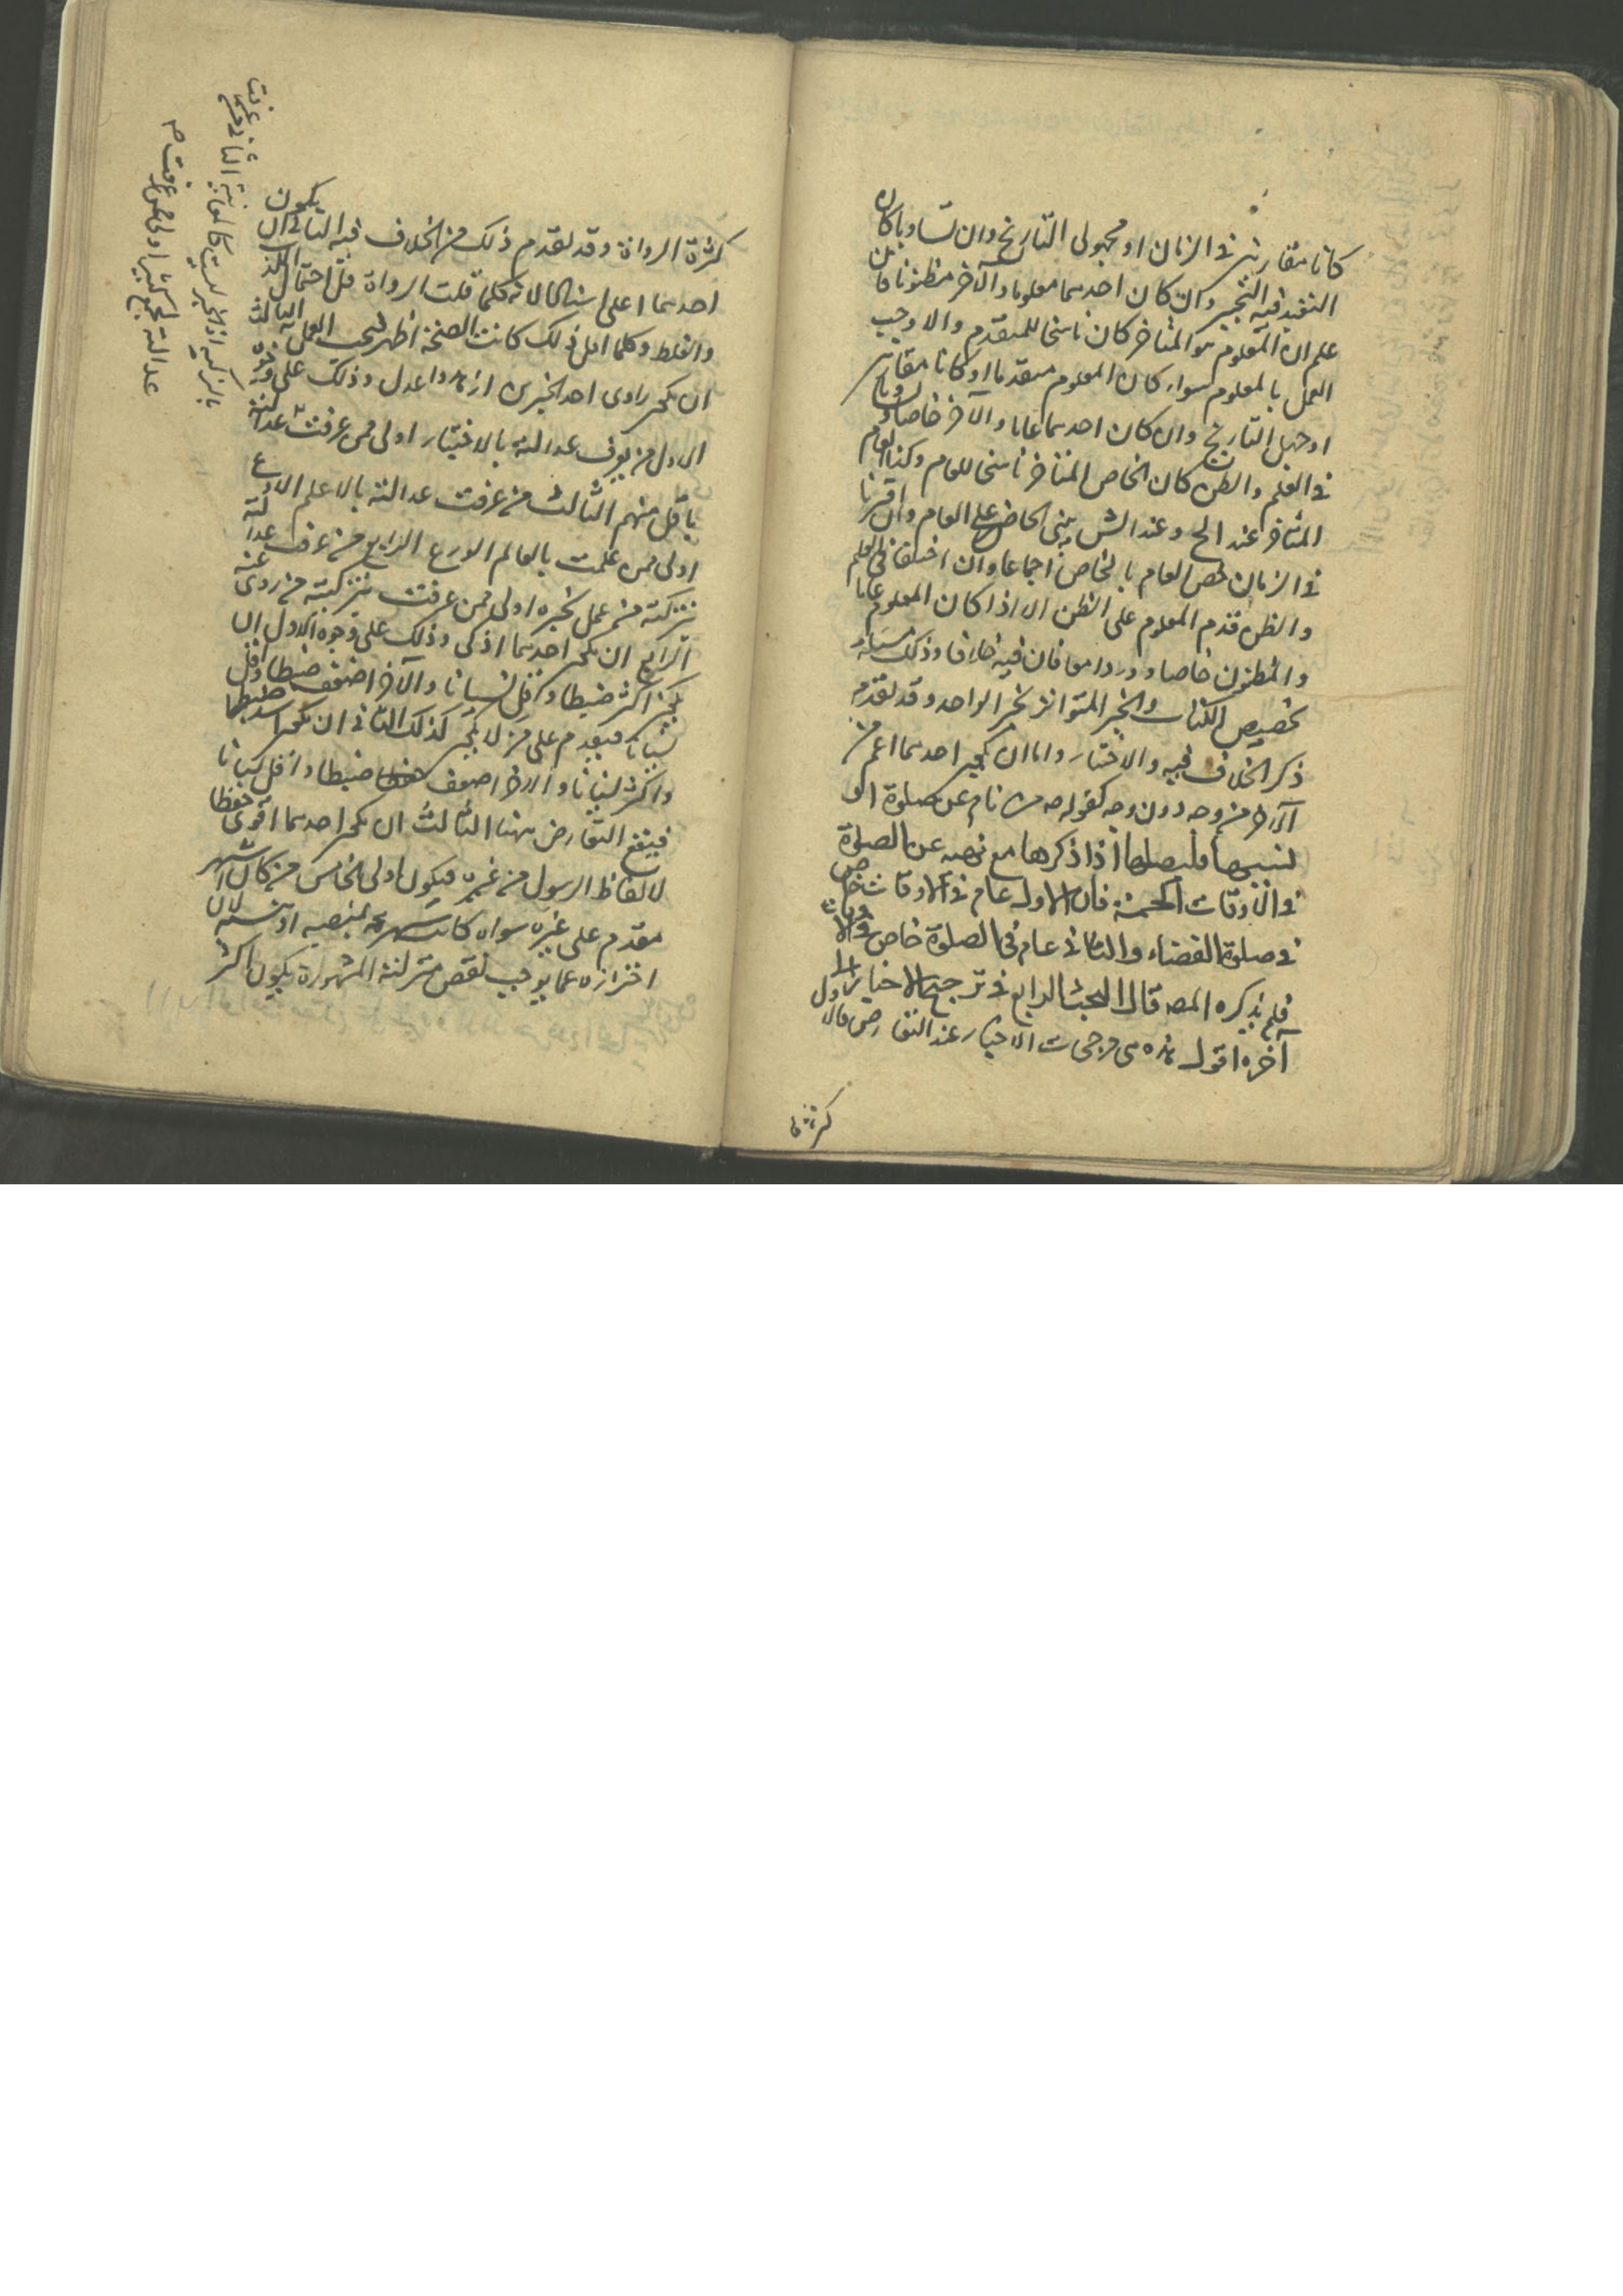 كانا مقارنين في الزمان او مجهولى التاريخ وان تساويا كان
التعبد فيه التخيير وان كان احدهما معلوما والآخر مظنونا فان
علم ان المعلوم هو المتأخر كان ناسخا للمتقدم والا وجب
العمل بالمعلوم سواء كان المعلوم متقدما او كانا مقارنين
او جهل التاريخ وان كان احدهما عاما والآخر خاصا وتساويا
في العلم والظن كان الخاص المتأخر ناسخا للعام وكذا العام
المتأخر عند الح وعند الش يبنى الخاص على العام وان اقترنا
في الزمان خص العام بالخاص اجماعا وان اختلفا في العلم
والظن قدم المعلوم على الظن الا اذا كان المعلوم عاما
والمظنون خاصا ووردا معا فان فيه خلافا وذلك مسئلة
تخصيص الكتاب والخبر المتواتر بخبر الواحد وقد تقدم
ذكر الخلاف فيه والاختيار واما ان يكون احدهما اعم من
الآخر من وجه دون وجه كقوله ص من نام عن صلوة او
نسيها فليصلها اذا ذكرها مع نهيه عن الصلوة
في الاوقات الخمسة فان الاول عام في الاوقات خاص
في صلوة القضاء والثاني عام في الصلوة خاص في الاوقات
فلم يذكره المصـ قال البحث الرابع في ترجيح الاخبار الى
آخره اقول هذه هي مرجحات الاخبار عند التعارض فالاول
كثرة
كثرة الرواة وقد تقدم ذلك من الخلاف فيه الثاني ان يكون
احدهما اعلى اسنادا لانه كلما قلت الرواة قل احتمال الكذب
والغلط وكلما اقل ذلك كانت الصحة اظهر فيجب العمل به الثالث
ان يكون راوى احد الخبرين ازهد واعدل وذلك على وجوه
الاول من يعرف عدالته بالاختبار اولى ممن عرفت عدالته
باقل منهم الثالث من عرفت عدالته بالاعلم الاورع
اولى ممن علمت بالعالم الورع الرابع من عرفت عدالته
بتزكية من عمل بخبره اولى ممن عرفت بتزكية من روى عنه
الرابع ان يكون احدهما اذكى وذلك على وجوه الاول ان
يكون اكثر ضبطا واقل نسيانا والآخر اضعف ضبطا واقل
نسيانا فيقدم على من لا يكون كذلك الثاني ان يكون اشد ضبطا
واكثر نسيانا والآخر اضعف ضبطا واقل نسيانا
فيقع التعارض هنا الثالث ان يكون احدهما اقوى حفظا
لالفاظ الرسول من غيره فيكون اولى الخامس من كان اشهر
مقدم على غيره سواء كانت شهرته لمنصبه او نسبه لان
احترازه عما يوجب نقص منزلته المشهورة يكون اكثر
عدالته بجمع كثير اولى ممن عرفت ص